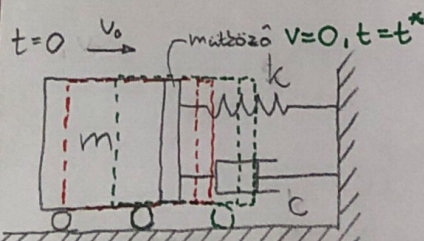 t=0 v₀ ütköző v=0, t=t*
k
m
c